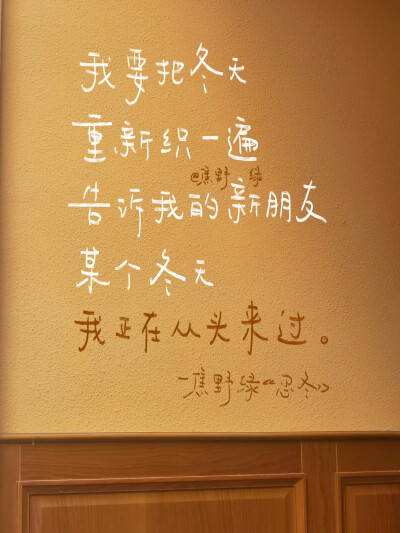 我要把冬天
重新织一遍
@焦野 绿
告诉我的新朋友
某个冬天
我正在从头来过。
一焦野绿《忍冬》